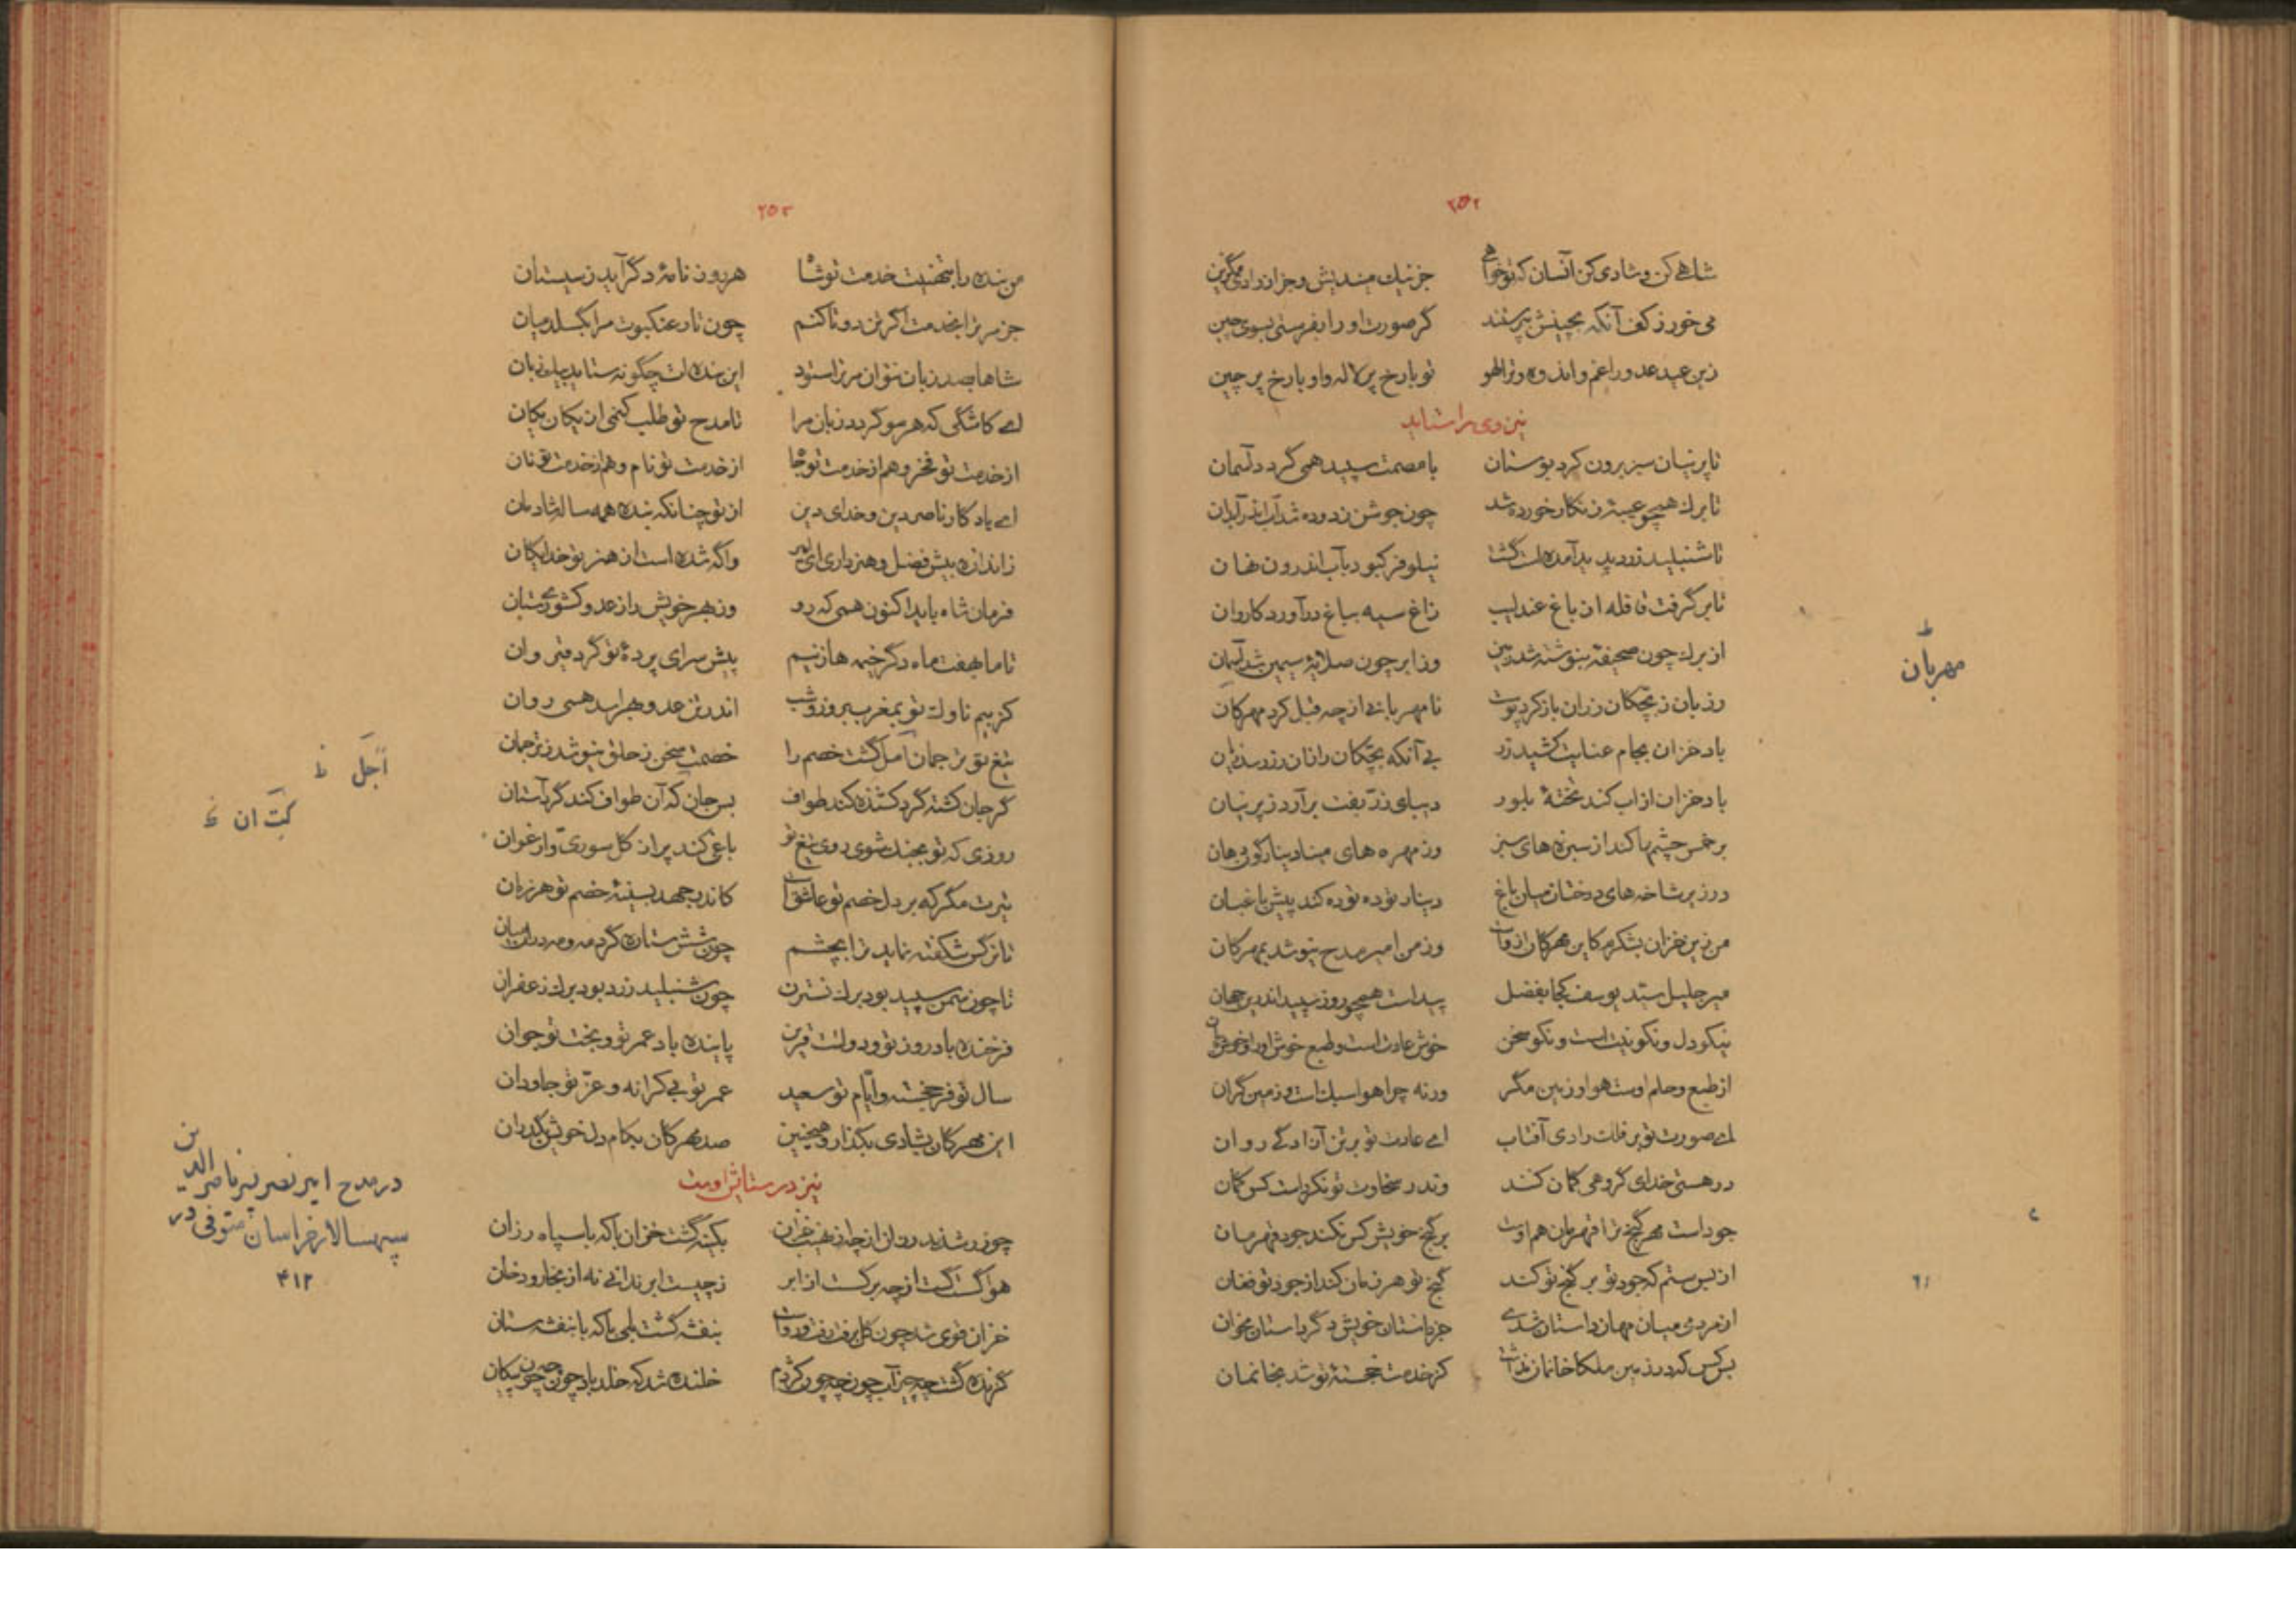 ۲۵۲
شاهی کن و شادی کن آنسان که تو خواهی جز نیک میندیش و جز از رادی مگزین
می خور ز کف آنکه بچینش پرستند گر صورت او را بفرستی بسوی چین
زین عید عدو را غم و اندوه و ترا لهو تو با رخ پر لاله و او با رخ پر چین
نیز وی را ستاید
تا پرنیان سبز برون کرد بوستان با مصمت سپید همی گردد آسمان
تا برک همچو غیبه زنگار خورده شد چون جوشن زدوده شد آب اندر آبدان
تا شنبلید زرد پدید آمده است گشت نیلوفر کبود بآب اندرون نهان
تا بر گرفت قافله از باغ عندلیب زاغ سیه بباغ در آورد کاروان
از برک چون صحیفه بنوشته شد زمین وز ابر چون صلایه سیمین شد آسمان
مهربان
رز بان ز بچکان رزان باز کرد پوست نا مهربانی از چه قبل کرد مهرکان
باد خزان بجام عنایت کشید زر بی آنکه بچکان رزان را
باد خزان از آب کند تخته بلور دیبای زر بفت بر آرد ز پرنیان
بر خمس چشمها کند از سبزه های سبز وز مهره های مینا دینارگون دهان
در زیر شاخه های درختان میان باغ دینار توده توده کند پیش باغبان
من زین خزان بشکرم کاین مهرکان ازوست وز من امیر مدح نیوشد بمهرکان
میر جلیل سید یوسف کجا بفضل پیداست همچو روز سپید اندرین جهان
نیکو دل و نکو نیت است و نکو سخن خوش عادت است و طبع خوش او را و خوش زبان
از طبع و حلم اوست هوا و زمین مگر ورنه چرا هوا سبک است و زمین گران
ای صورت تو بر فلک رادی آفتاب ای عادت تو بر تن آزادگی روان
در هستی خدای گروهی گمان کنند وندر سخاوت تو نکرده است کس گمان
جود است مهر گنج ترا قهرمان هم اوست بر گنج خویش کس نکند جود قهرمان
از بس ستم که جود تو بر گنج تو کند گنج تو هر زمان کند از جود تو فغان
از مردمی میان مهان داستان شدی جز باستان خویش دگر داستان مخوان
بر کس که در زمین ملکا خانمان نداشت کز خدمت خجسته تو شد بخانمان
۲۵۳
من بنده را بتهنیت خدمت تو شاها هر روز نامه دگر آید ز سیستان
جز مر ترا بخدمت اگر تن دو تا کنم چون تار عنکبوت مرا بگسلد میان
شاها بصد زبان نتوان مر ترا ستود این بنده ات چگونه ستاید بیک زبان
ای کاشکی که هر مو گردد زبان مرا تا مدح تو طلب کنمی از یکان یکان
از خدمت تو فخر و هم از خدمت تو جاه از خدمت تو نام و هم از خدمت تو نان
ای یادگار ناصر دین و خدای دین از تو چنانکه بنده همه ساله شادمان
ز اندازه بیش فضل و هنر داری ای امیر واگه شده است از هنر تو خدایگان
فرمان شاه باید اکنون همی که رو وز بهر خویش را ز عدو کشوری ستان
تا ما بهفت ماه دگر خیمه ها زنیم پیش سرای پرده تو گرد قیروان
کز بیم ناوک تو بمغرب بروز و شب اندر تن عدو بهراسد همی روان
تیغ تو ترجمان امل گشت خصم را خصمت سخن ز حلق نیوشد ز ترجمان
اَجَل ظ
گر جان کشته گرد کشنده کند طواف بس جان که آن طواف کند گرد آستان
روزی که تو بجنگ شوی روی تیغ تو باغی کند پر از گل سوری و ارغوان
تیرت مگر که بر دل خصم تو عاشق است کاندر جهد بسینه خصم تو هر زمان
تا نرگس شکفته نماید ترا بچشم چون شش ستاره گرد مه و مه در آن میان
تا چون سمن سپید بود برک نسترن چون شنبلید زرد بود برک زعفران
فرخنده باد روز تو و دولتت قرین پاینده باد عمر تو و بخت تو جوان
سال تو فر خجسته و ایام تو سعید عمر تو بی کرانه و عز تو جاودان
این مهرکان بشادی بگذار و همچنین صد مهرکان بکام دل خویش بگذران
نیز در ستایش اوست
در مدح امیر نصر بن ناصر الدین
سپهسالار خراسان متوفی در
۴۱۲
هوا گسست گسست از چه بر گسست از ابر ز چیست ابر ندانی نه از بخار و دخان
خزان قوی شد چون گل برفت رفت رواست بنفشه گشت بلی با که با بنفشه ستان
گزنده گشت چه چیز آب چون چه چون کژدم خلنده شد که خلد باد چون چه چون پیکان